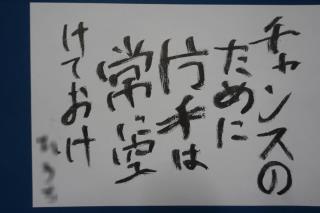 チャンスの
ために
片手は
常に空
けておけ